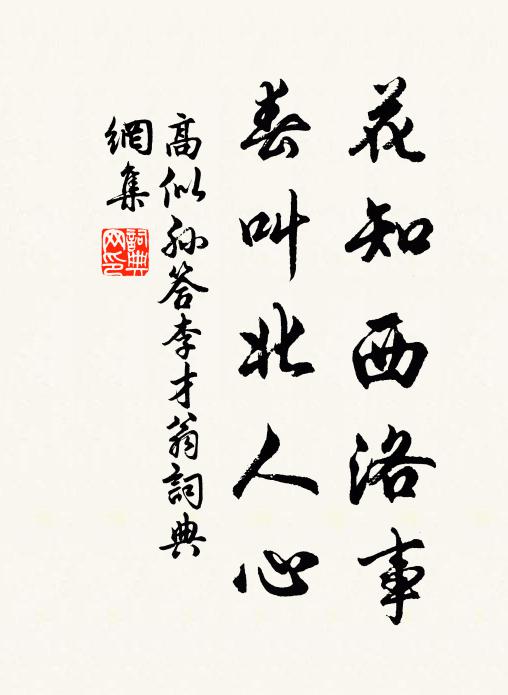 花知西洛事
春叫北人心
高似孙答李才翁詞典
網集
詞典
网印